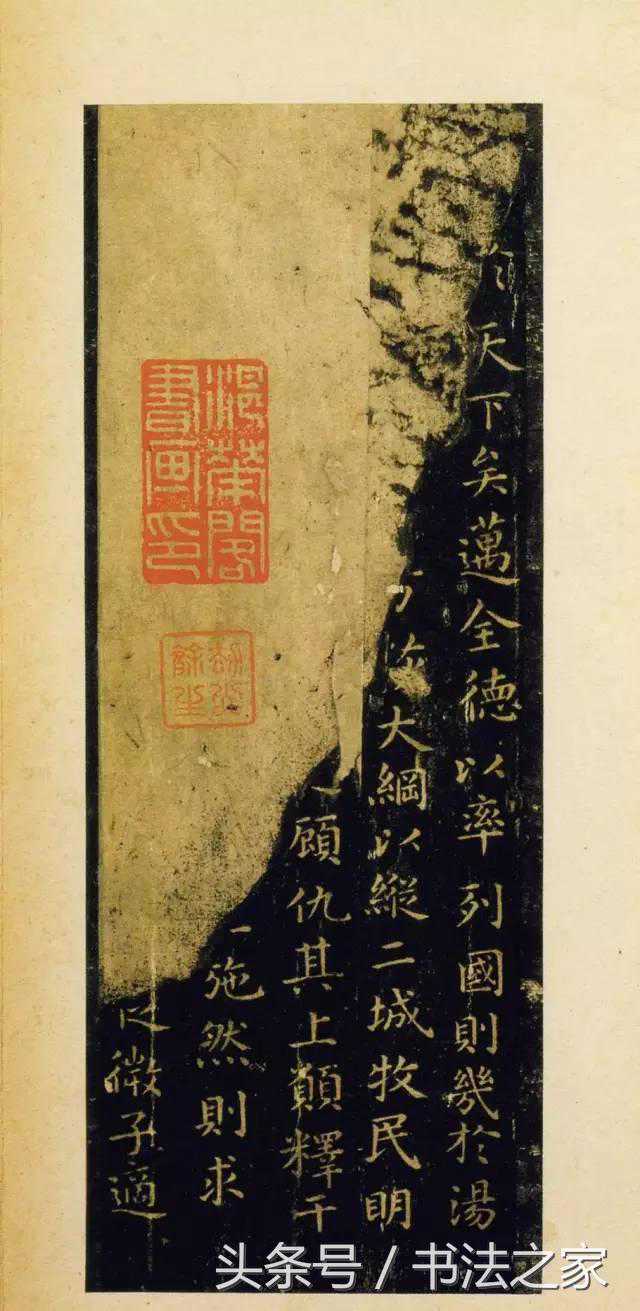 天下矣邁全德以率列國則幾於湯
大綱以縱二城牧民明
顧仇其上願釋干
施然則求
微子適
閣書畫印
头条号 / 书法之家